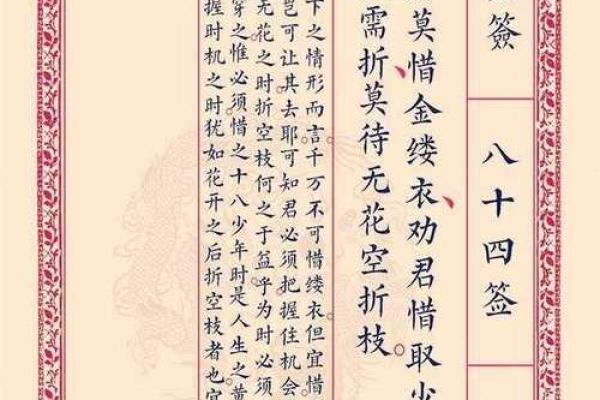 簽
八十四签
莫惜金缕衣、劝君惜取少
需折、莫待无花空折枝。
下之情形而言千万不可惜缕衣但宜惜
岂可让其去耶可知君必须把握住机会
无花之时折空枝何之于益乎为时必须
穿之惟必须惜之十八少年时是人生之黄
握时机之时犹如花开之后折空枝者也宜